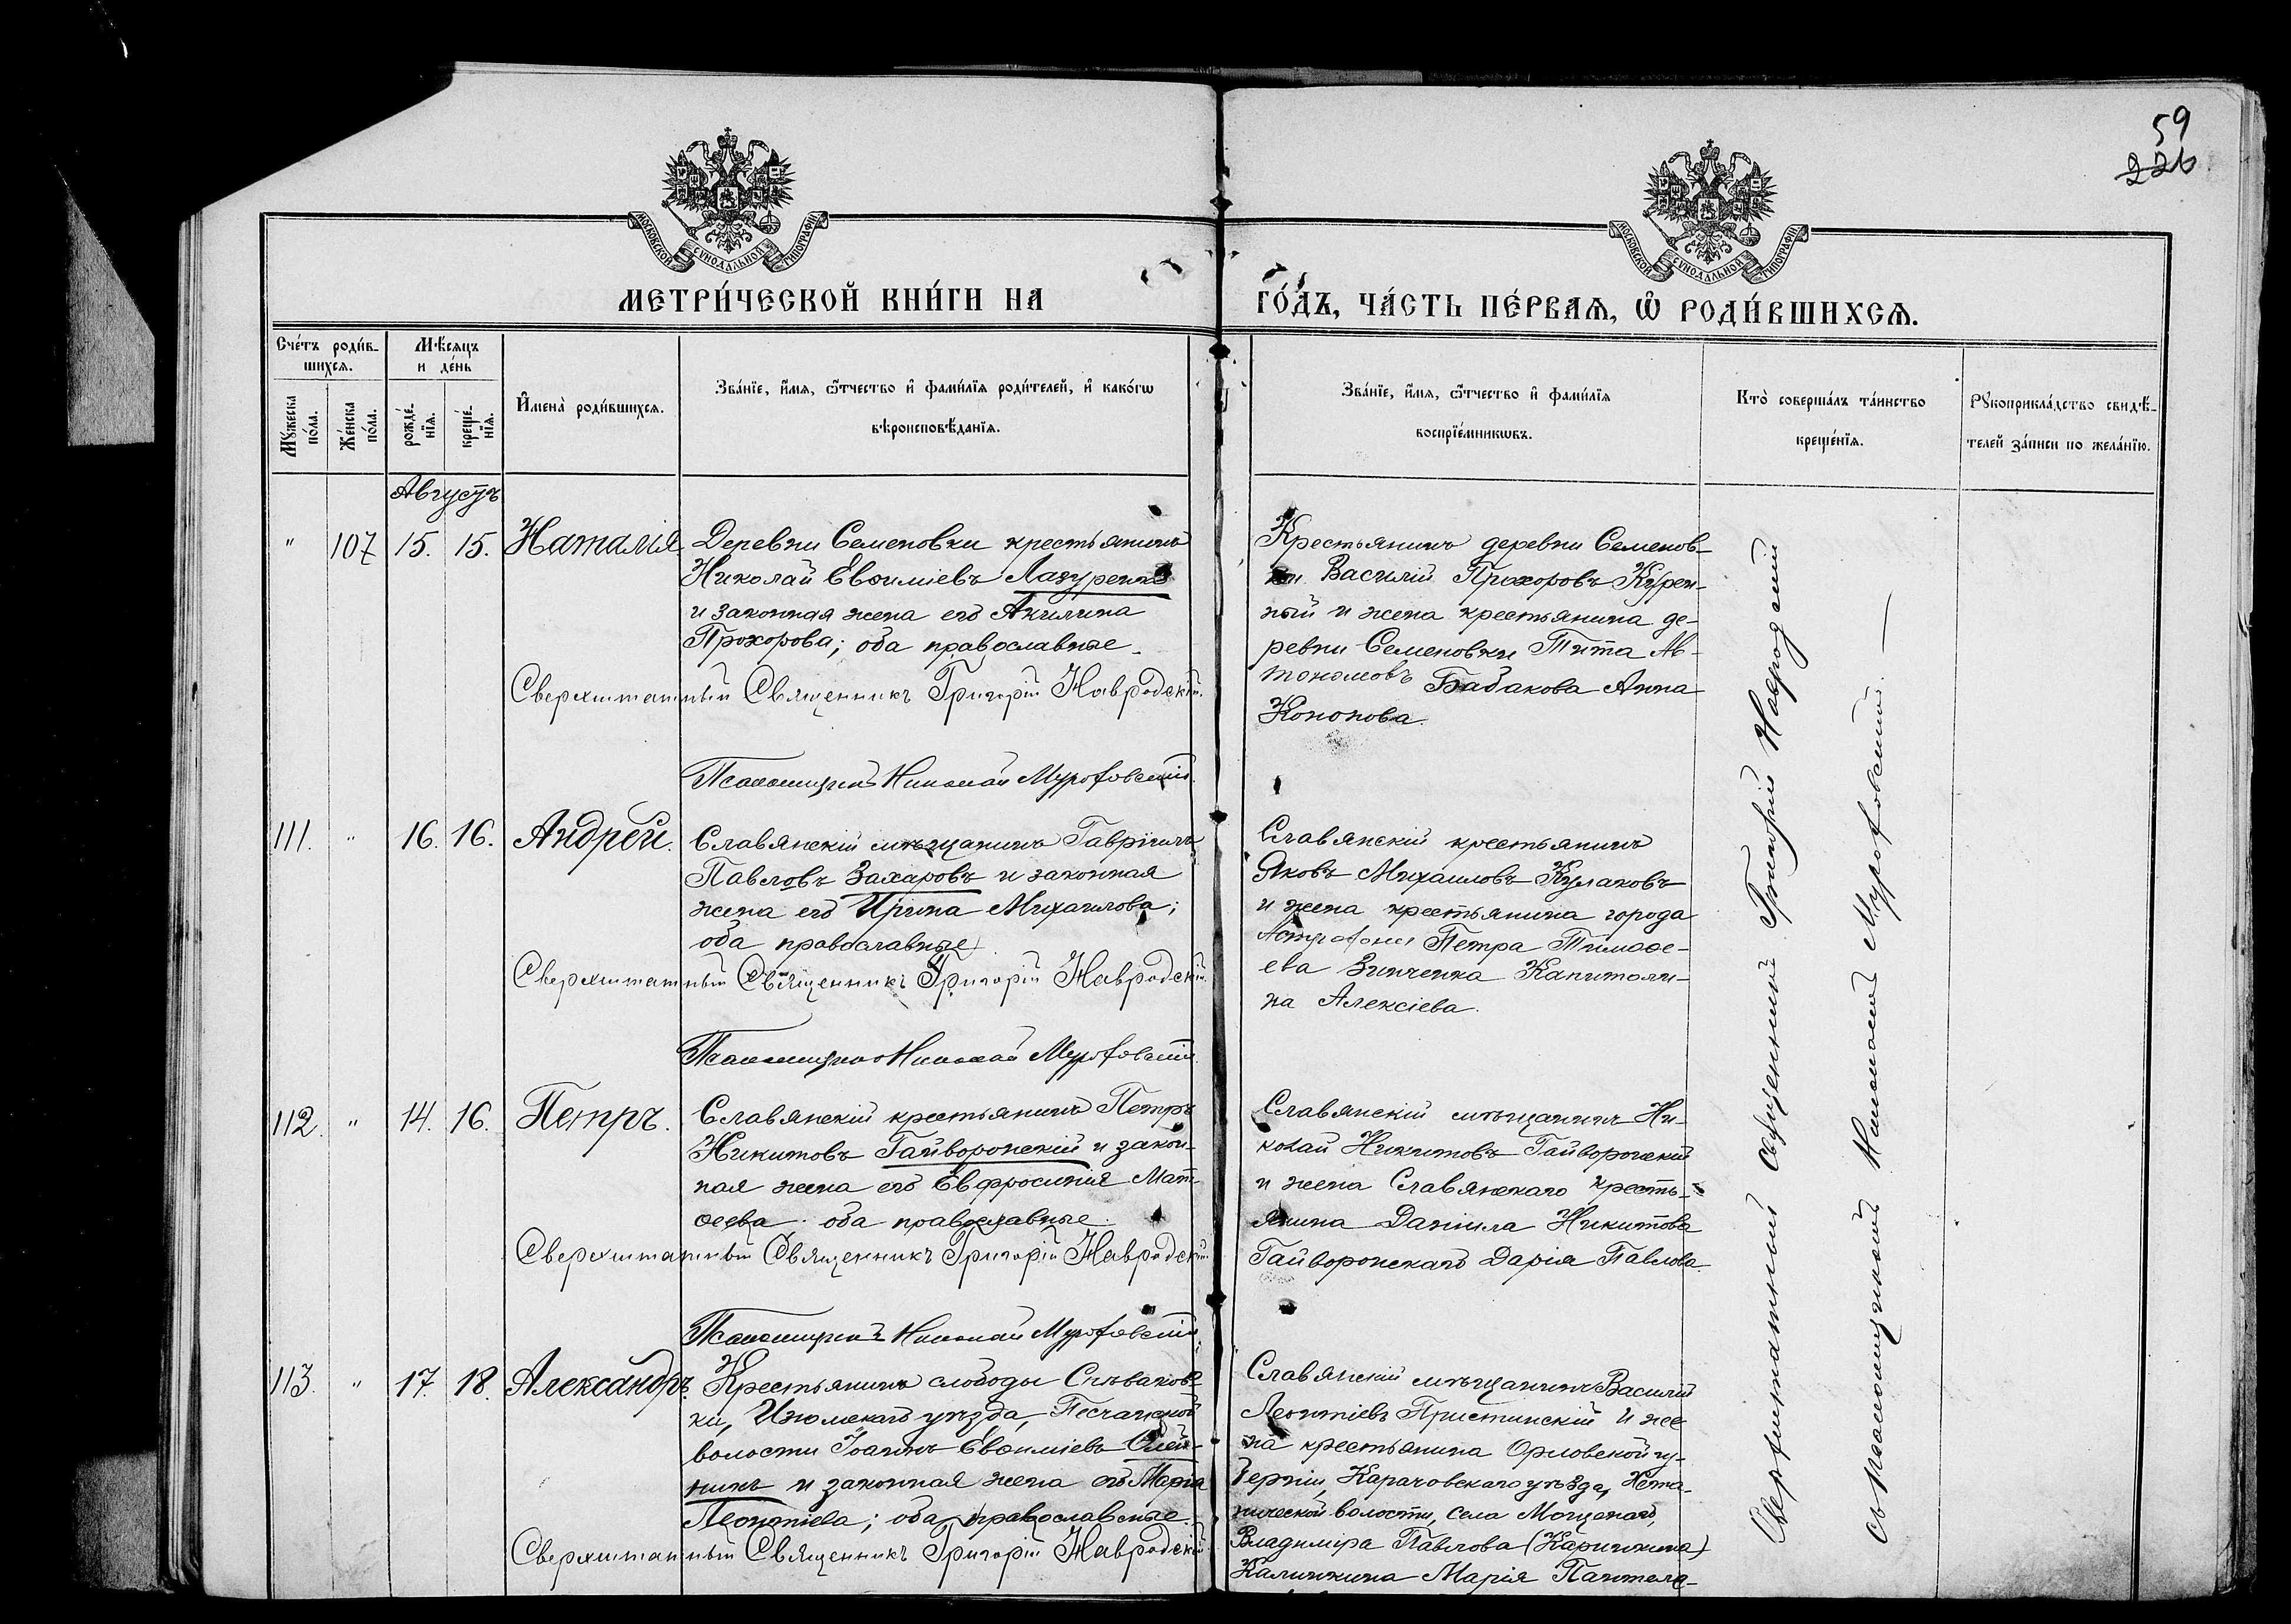 59
226
МОСКОВСКОЙ СѴНОДАЛЬНОЙ ТИПОГРАФІИ
МОСКОВСКОЙ СѴНОДАЛЬНОЙ ТИПОГРАФІИ
МЕТРИ́ЧЕСКОЙ КНИ́ГИ НА
ГО́ДЪ, ЧА́СТЬ ПЕ́РВАѦ, Ѡ҆ РОДИ́ВШИХСѦ.
Сче́тъ роди́в-
шихсѧ.
Мꙋ́жеска
по́ла.
Же́нска
по́ла.
Мѣ́сѧцъ
и де́нь
рожде́-
нїѧ.
креще́-
нїѧ.
И҆мена̀ роди́вшихсѧ.
Зва́нїе, и҆́мѧ, ѻ҆́тчество и҆ фами́лїѧ роди́телей, и҆ како́гѡ
вѣроисповѣ́данїѧ.
Зва́нїе, и҆́мѧ, ѻ҆́тчество и҆ фами́лїѧ
воспрїе́мникѡвъ.
Кто̀ соверша́лъ та́инство
креще́нїѧ.
Рꙋкоприкла́дство свидѣ́-
телей за́писи по жела́нїю.
Августъ
" 107 15. 15. Наталія
Деревни Семеновки крестьянинъ
Николай Евѳиміевъ Лазуренко
и законная жена его Акилина
Прохорова; оба православные
Сверхштатный Священникъ Григорій Навродскій.
Псаломщикъ Николай Мурофовскій.
Крестьянинъ деревни Семенов-
ки Василій Прохоровъ Курен-
ный и жена крестьянина де-
ревни Семеновки Тита Ав-
тономовъ Бабакова Анна
Кононова.
111. " 16. 16. Андрей.
Славянскій мѣщанинъ Гавріилъ
Павловъ Захаровъ и законная
жена его Ирина Михаилова;
оба православные
Сверхштатный Священникъ Григорій Навродскій.
Псаломщикъ Николай Мурофовскій.
Славянскій крестьянинъ
Яковъ Михаиловъ Кулаковъ
и жена крестьянина города
Петра Тимоѳе-
ева Зинченка Капитоли-
на Алексіева.
112. " 14. 16. Петръ.
Славянскій крестьянинъ Петръ
Никитовъ Гайворонскій и закон-
ная жена его Евфросинія Мат-
ѳеева. оба православные.
Сверхштатный Священникъ Григорій Навродскій.
Псаломщикъ Николай Мурофовскій.
Славянскій мѣщанинъ Ни-
колай Никитовъ Гайворонскій
и жена Славянскаго кресть-
янина Даніила Никитова
Гайворонскаго Дарія Павлова.
113. " 17. 18. Александръ.
Крестьянинъ слободы Спѣваков-
ки, Изюмскаго уѣзда, Песчанской
волости Іоаннъ Евѳиміевъ Олей-
никъ и законная жена его Марія
Леонтіева; оба православные.
Сверхштатный Священникъ Григорій Навродскій.
Славянскій мѣщанинъ Василій
Леонтіевъ Пристинскій и же-
на крестьянина Орловской гу-
берніи, Карачовскаго уѣзда,
волости, села
Владиміра Павлова (Каричкина)
Калинкина Марія Пантеле-
Сверхштатный Священникъ Григорій Навродскій
съ Псаломщикомъ Николаемъ Мурофовскимъ.